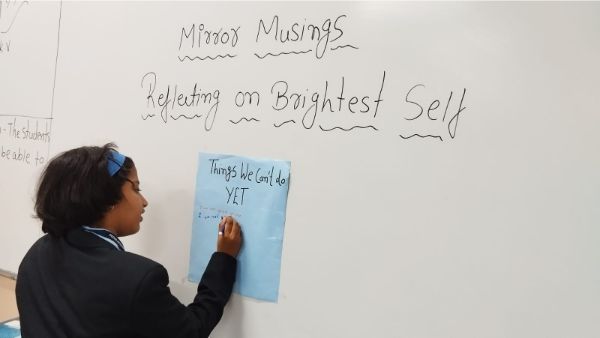 Mirror Musings
Reflecting on Brightest Self
- The Students
be able to
Things We Can't do
YET